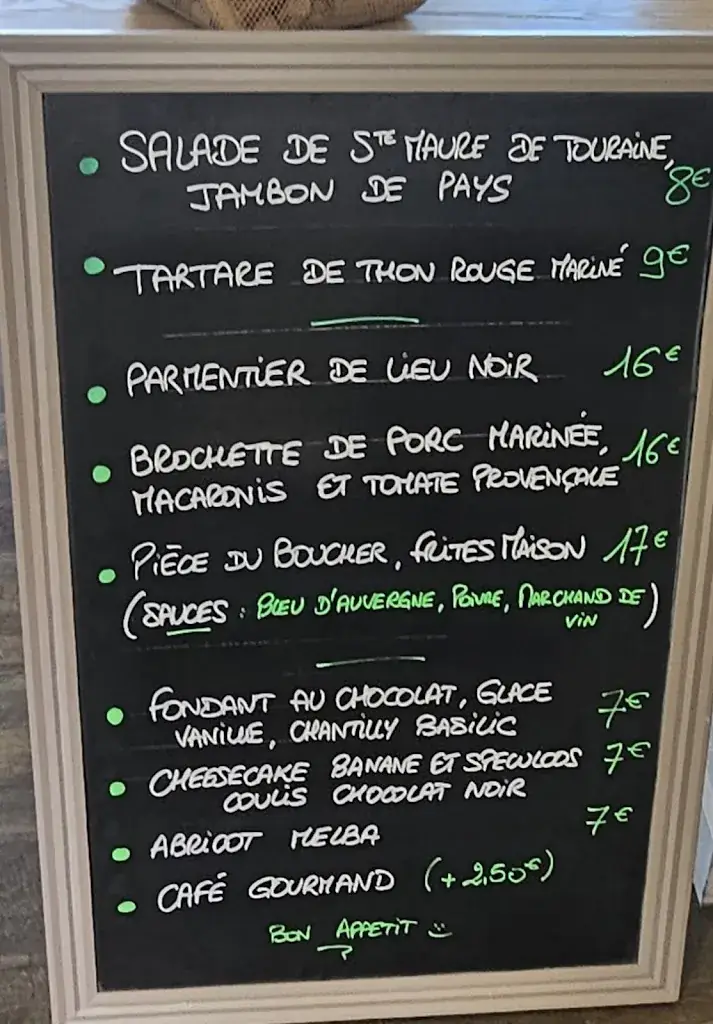 SALADE DE STE MAURE DE TOURAINE,
JAMBON DE PAYS 8€
TARTARE DE THON ROUGE MARINÉ 9€
PARMENTIER DE LIEU NOIR 16€
BROCHETTE DE PORC MARINÉE, 16€
MACARONIS ET TOMATE PROVENÇALE
PIÈCE DU BOUCHER, FRITES MAISON 17€
(SAUCES : BLEU D'AUVERGNE, POIVRE, MARCHAND DE
VIN)
FONDANT AU CHOCOLAT, GLACE 7€
VANILLE, CHANTILLY BASILIC
CHEESECAKE BANANE ET SPECULOOS 7€
COULIS CHOCOLAT NOIR
ABRICOT MELBA 7€
CAFÉ GOURMAND (+2,50€)
BON APPETIT